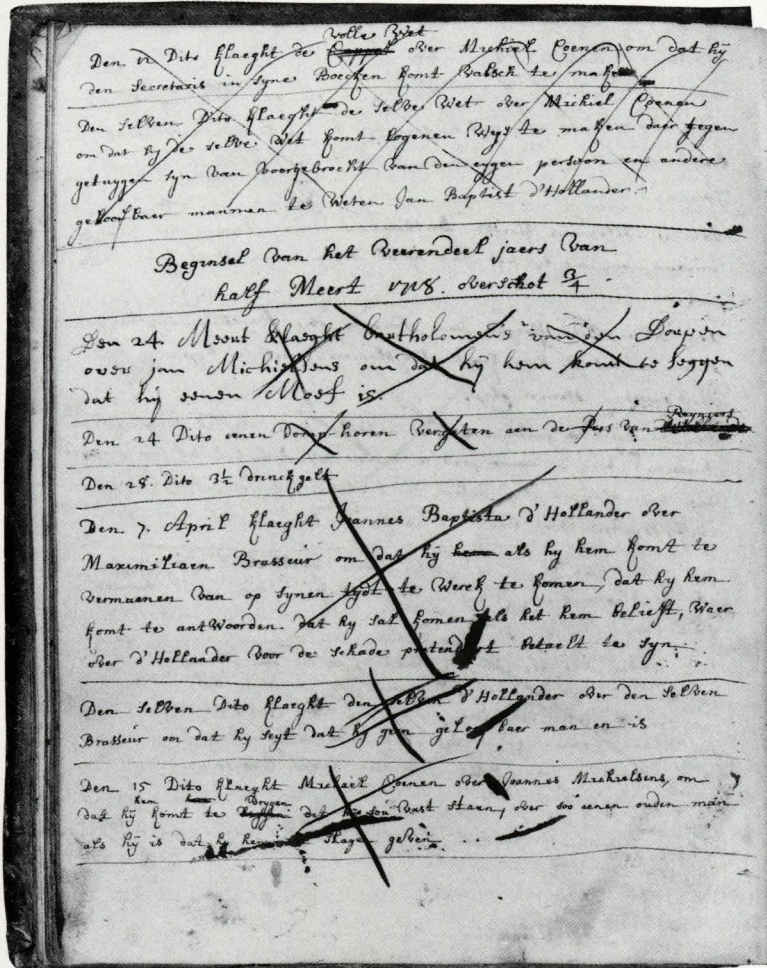 volle Wet
Den 12 Dito klaeght de Cappel over Michiel Coenen om dat hij
den Secretaris in syne Boecken komt valsch te maken
Den selven Dito klaeght de selve Wet over Michiel Coenen
om dat hij de selve Wet komt logenen Wijs te maken daer tegen
getuygen syn van voortgebrocht van den eygen persoon en andere
geloofbaer mannen te Weten Jan Baptist d'Hollander.
Beginsel van het veerendeel jaers van
half Meert 1718. overschot 3/4
Den 24. Meert klaeght bartholomeus van den Dorpen
over jan Michielsens om dat hij hem komt te seggen
dat hij eenen Moef is.
Reyniers
Den 24 Dito eenen horen vergeten aen de van
Den 28. Dito 3½ drinckgelt
Den 7. April klaeght Joannes Baptista d'Hollander over
Maximiliaen Brasseur om dat hij hem als hy hem komt te
vermaenen van op synen tydt te Werck te komen, dat hy hem
komt te antWoorden dat hy sal komen als het hem belieft, Waer
over d'Hollander voor de schade pretendeert betaelt te syn.
Den selven Dito klaeght den selven d'Hollander over den selven
Brasseur om dat hy seyt dat hy geen geloofbaer man en is
Den 15 Dito klaeght Michael Coenen over Joannes Michielsens, om
hem Drygen
dat hij komt te dat hy sou vast staen, over soo eenen ouden man
als hij is dat hy hem slagen geven